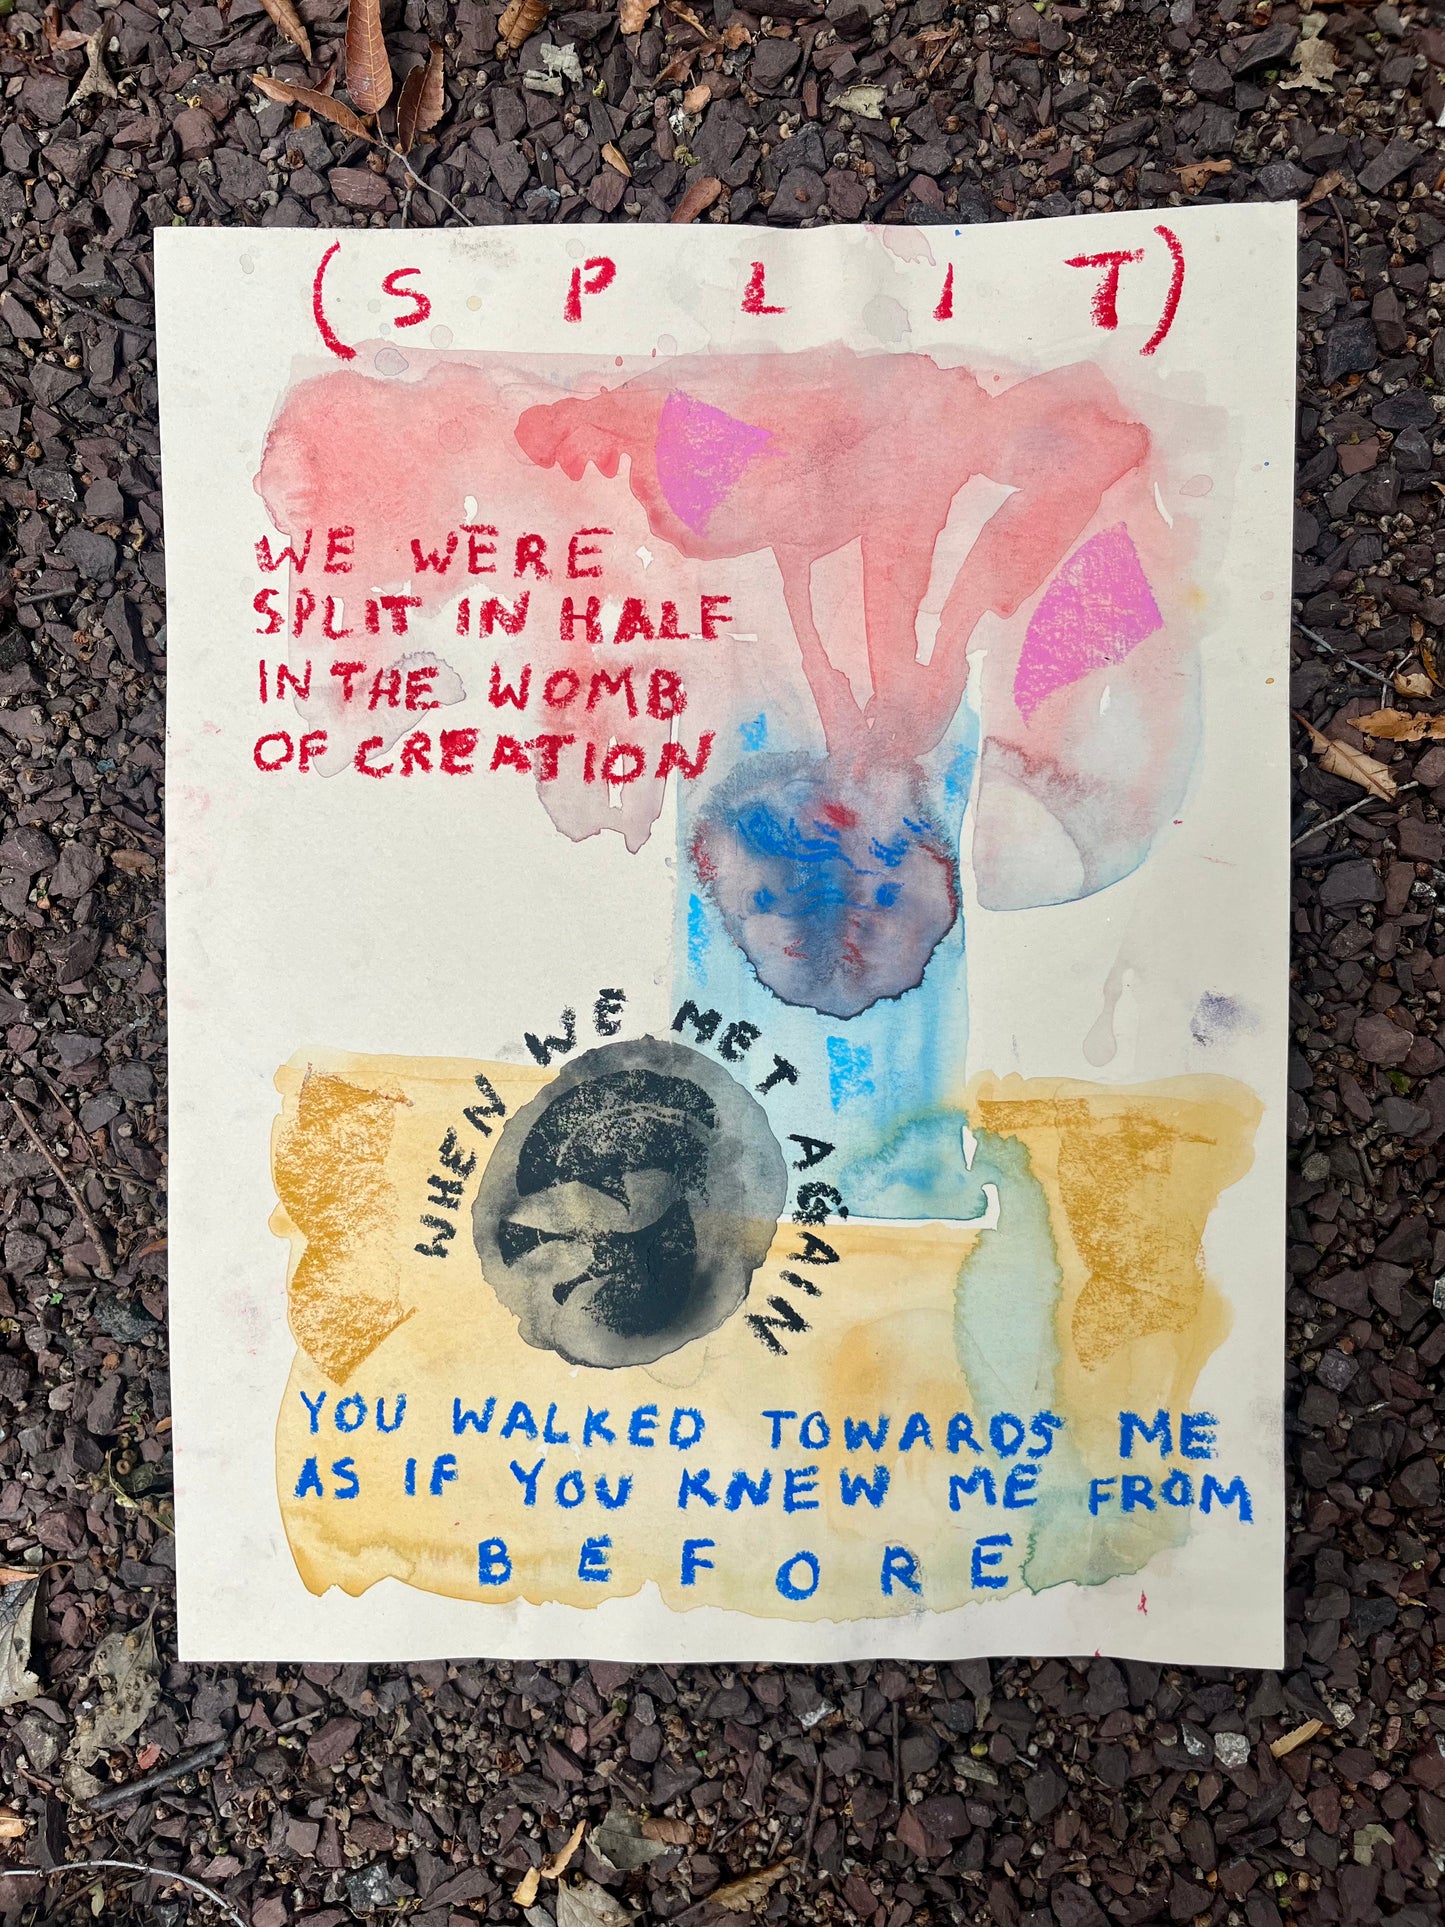 (SPLIT)
WE WERE
SPLIT IN HALF
IN THE WOMB
OF CREATION
WHEN WE MET AGAIN
YOU WALKED TOWARDS ME
AS IF YOU KNEW ME FROM
BEFORE